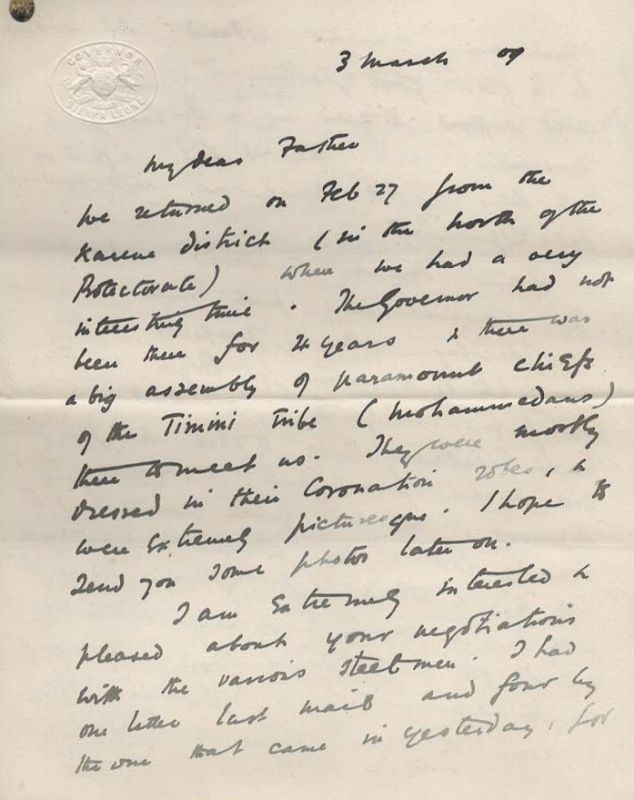 GOVERNOR
SIERRA LEONE
3 March 09
My dear Father
We returned on Feb 27 from the
Karene district (in the North of the
Protectorate) where we had a very
interesting time. The Governor had not
been there for 4 years & there was
a big assembly of paramount chiefs
of the Timini tribe (Mohammedans)
there to meet us. They were mostly
dressed in their Coronation robes, &
were extremely picturesque. I hope to
send you some photos later on.
I am extremely interested &
pleased about your negotiations
with the various steelmen. I had
one letter last mail and four by
the one that came in yesterday, for